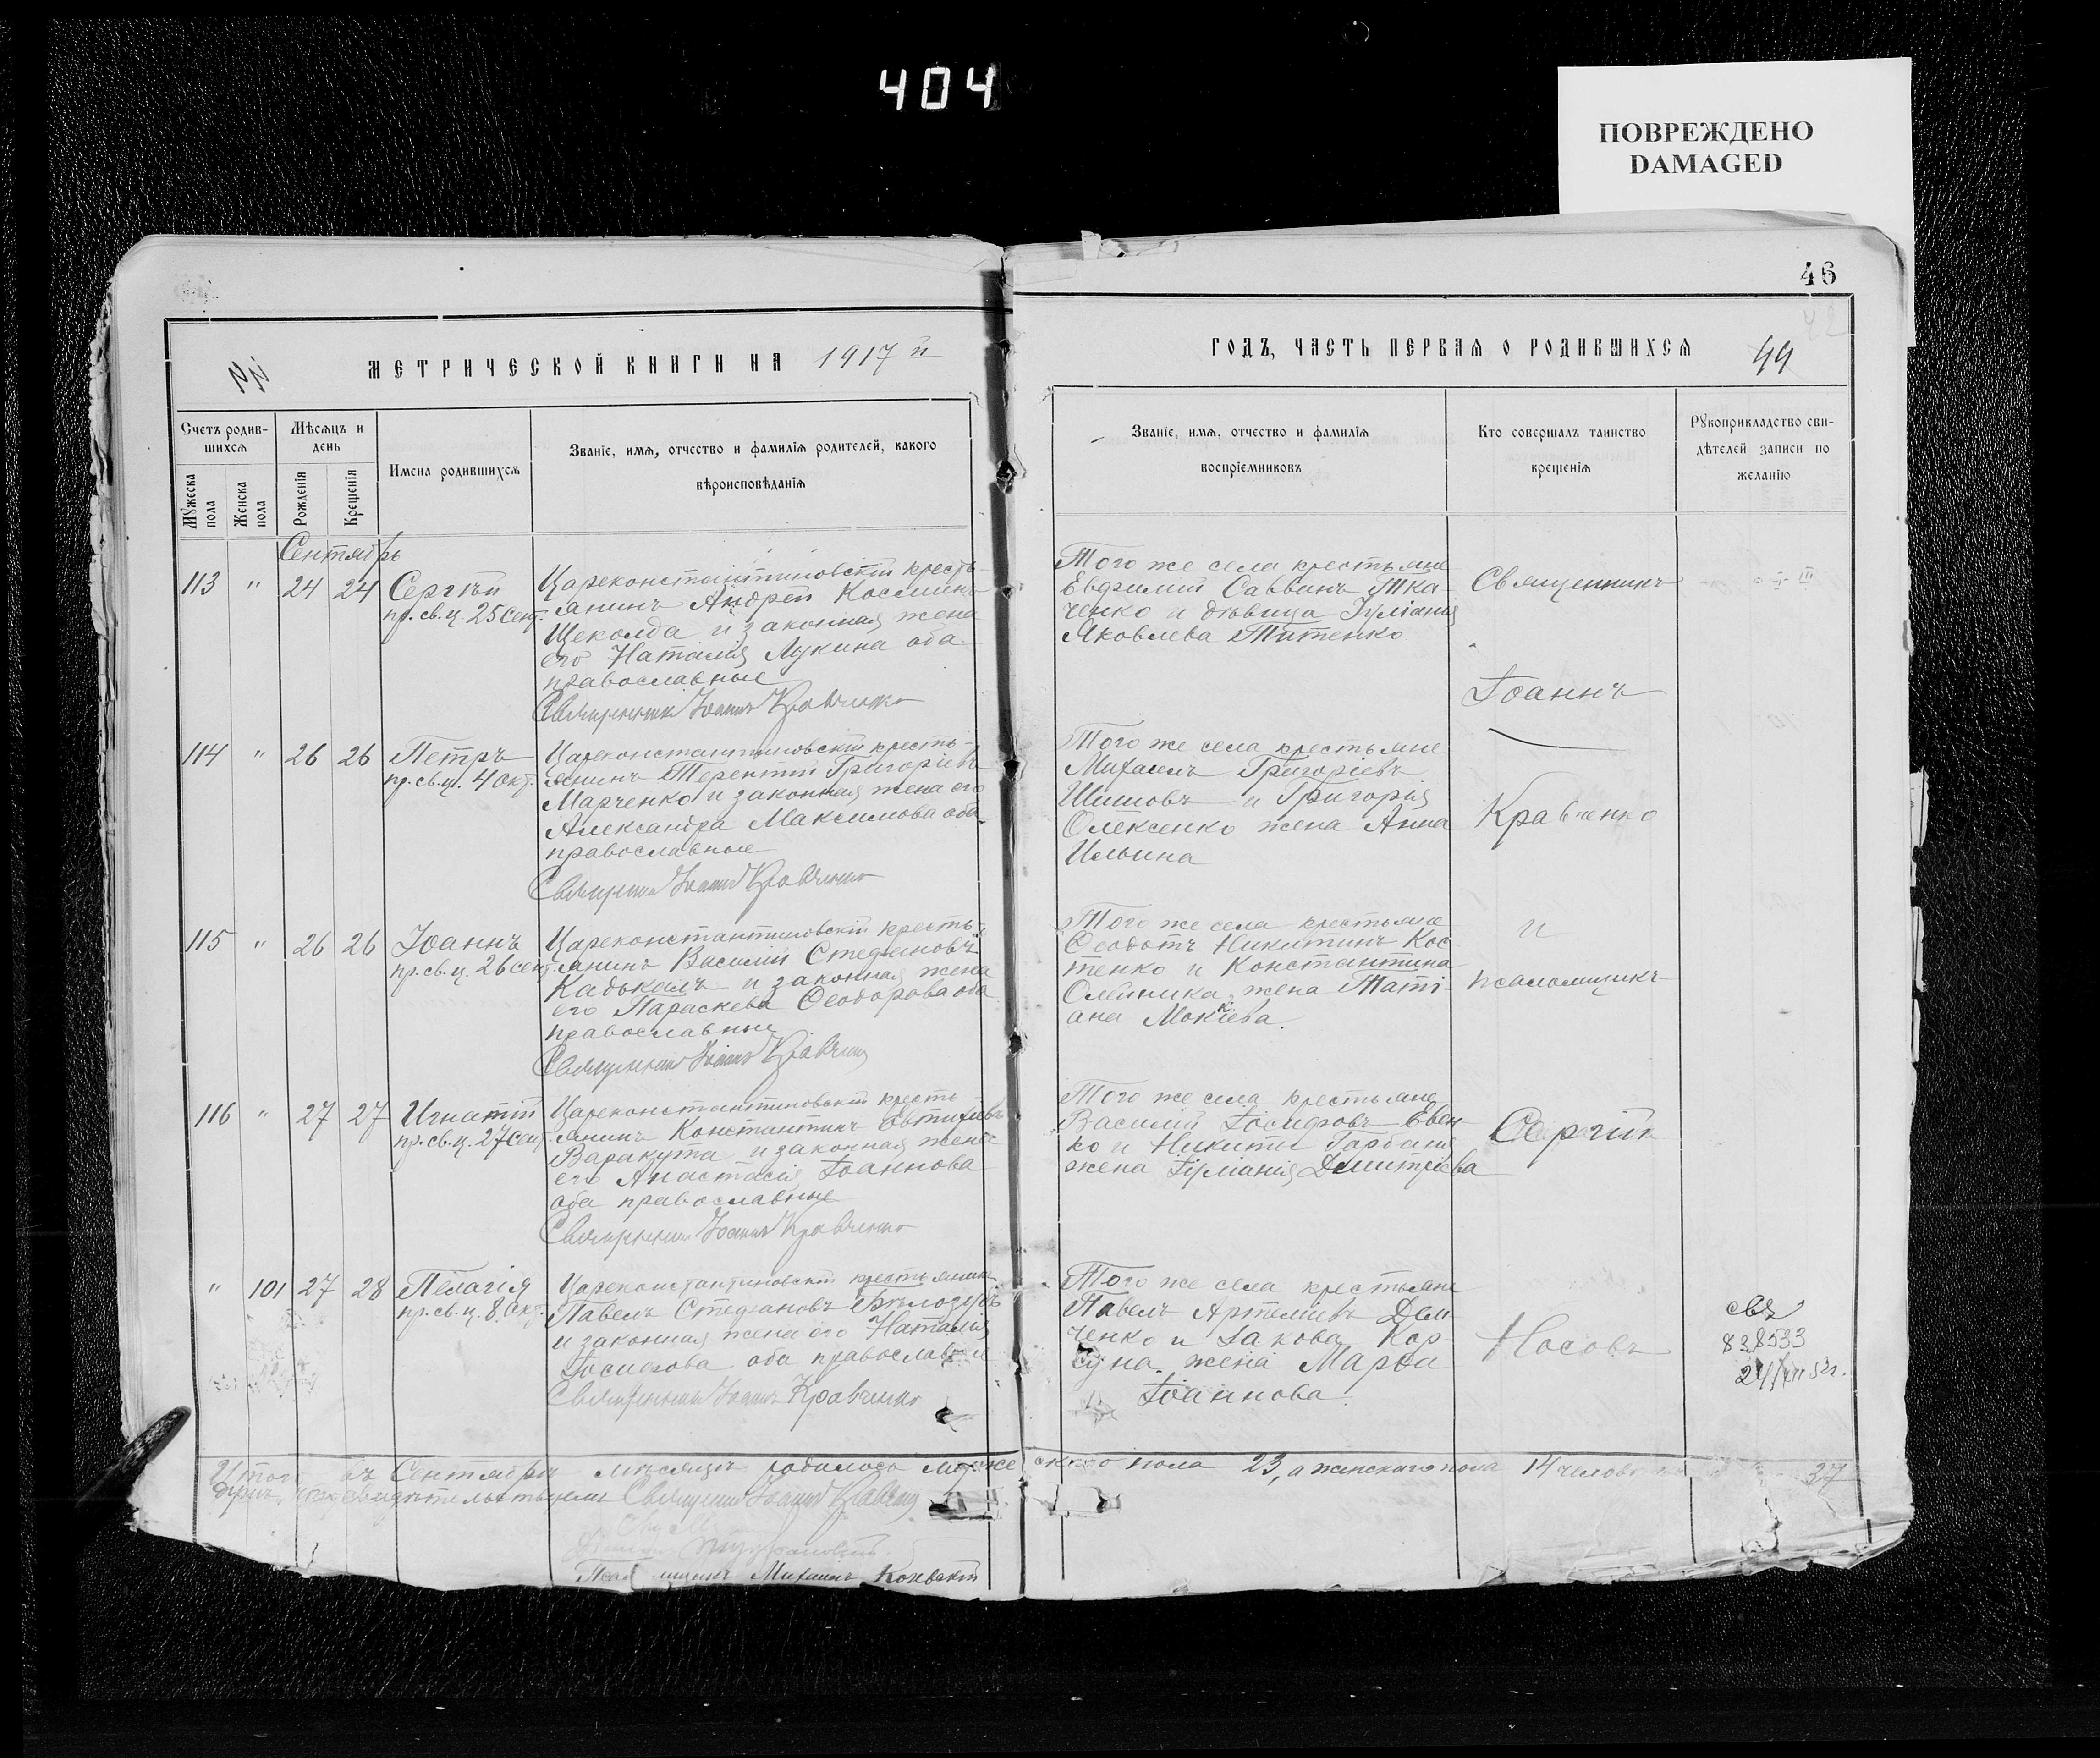 404
ПОВРЕЖДЕНО
DAMAGED
46
МЕТРИЧЕСКОЙ КНИГИ НА 1917 й
ГОДЪ, ЧАСТЬ ПЕРВАЯ О РОДИВШИХСЯ
44
Счетъ родив-
шихся
Мѣсяцъ и
день
Мужеска
пола
Женска
пола
Рожденія
Крещенія
Имена родившихся
Званіе, имя, отчество и фамилія родителей, какого
вѣроисповѣданія
Званіе, имя, отчество и фамилія
воспріемниковъ
Кто совершалъ таинство
крещенія
Рукоприкладство сви-
дѣтелей записи по
желанію
Сентябрь
113 " 24 24 Сергѣй
пр. св. ц. 25 Сент.
Цареконстантиновскій кресть-
янинъ Андрей Косминъ
Щеколда и законная жена
его Наталія Лукина оба
православные
Священникъ Іоаннъ Кравченко
Того же села крестьяне
Евфимій Саввинъ Тка-
ченко и дѣвица Іуліанія
Яковлева Титенко
Священникъ
Іоаннъ
114 " 26 26 Петръ
пр. св. ц. 4 Окт.
Цареконстантиновскій кресть-
янинъ Терентій Григоріевъ
Марченко и законная жена его
Александра Максимова оба
православные
Священникъ Іоаннъ Кравченко
Того же села крестьяне
Михаилъ Григоріевъ
Шишовъ и Григорія
Олексенко жена Анна
Ильина
Кравченко
115 " 26 26 Іоаннъ
пр. св. ц. 26 сент.
Цареконстантиновскій кресть-
янинъ Василій Стефановъ
Кадькалъ и законная жена
его Параскева Ѳеодорова оба
православные
Священникъ Іоаннъ Кравченко
Того же села крестьяне
Ѳеодотъ Никитинъ Кос-
тенко и Константина
Олейника жена Таті-
ана Мокіева.
и
псаломщикъ
116 " 27 27 Игнатій
пр. св. ц. 27 Сент.
Цареконстантиновскій кресть-
янинъ Константинъ Евтихіевъ
Варакута и законная жена
его Анастасія Іоаннова
оба православные
Священникъ Іоаннъ Кравченко
Того же села крестьяне
Василій Іосифовъ Евен-
ко и Никиты Горбаня
жена Іуліанія Димитріева
Сергій
" 101 27 28 Пелагія
пр. св. ц. 8 Окт.
Цареконстантиновскій крестьянинъ
Павелъ Стефановъ Бѣлозеръ
и законная жена его Наталія
Іосифова оба православные
Священникъ Іоаннъ Кравченко
Того же села крестьяне
Павелъ Артеміевъ Дем-
ченко и Іакова Кор-
суна жена Марѳа
Іоаннова.
Носовъ
838533
Итого въ Сентябрѣ мѣсяцѣ родилось мужескаго пола 23, а женскаго пола 14 человѣкъ 37
свидѣтельствуемъ Священникъ Іоаннъ Кравченко
Михаилъ